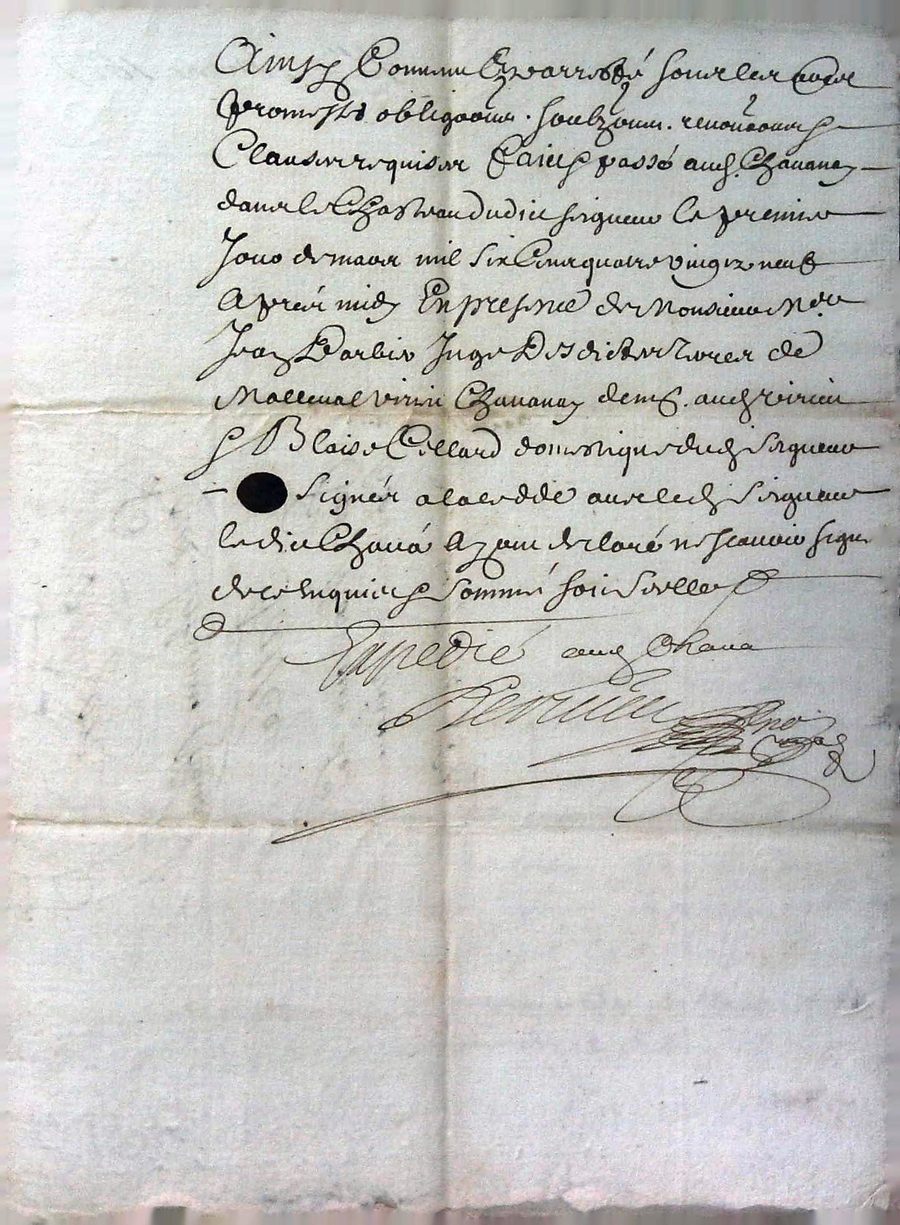 Ainsy Convenu Et arresté soubz les
promesses obligaons. soubzmi. renonaons &
Clauses requises faict & passé aud. Chavanay
dans le Chasteau dudit seigneur le premier
Jour de mars mil six Cens quatre vingtz neuf
Apres midy En presence de Monsieur Me
Jean Barbier Juge Desdictes Terres de
Malleval virieu Chavanay demt. aud virieu
& Blaise Cellard domestique dud seigneur
Signés a la cedde avec led seigneur
ledit Chava Ayant declaré ne scavoir signer
de ce Enquis & sommé soit scellé
Expedié aud Chava